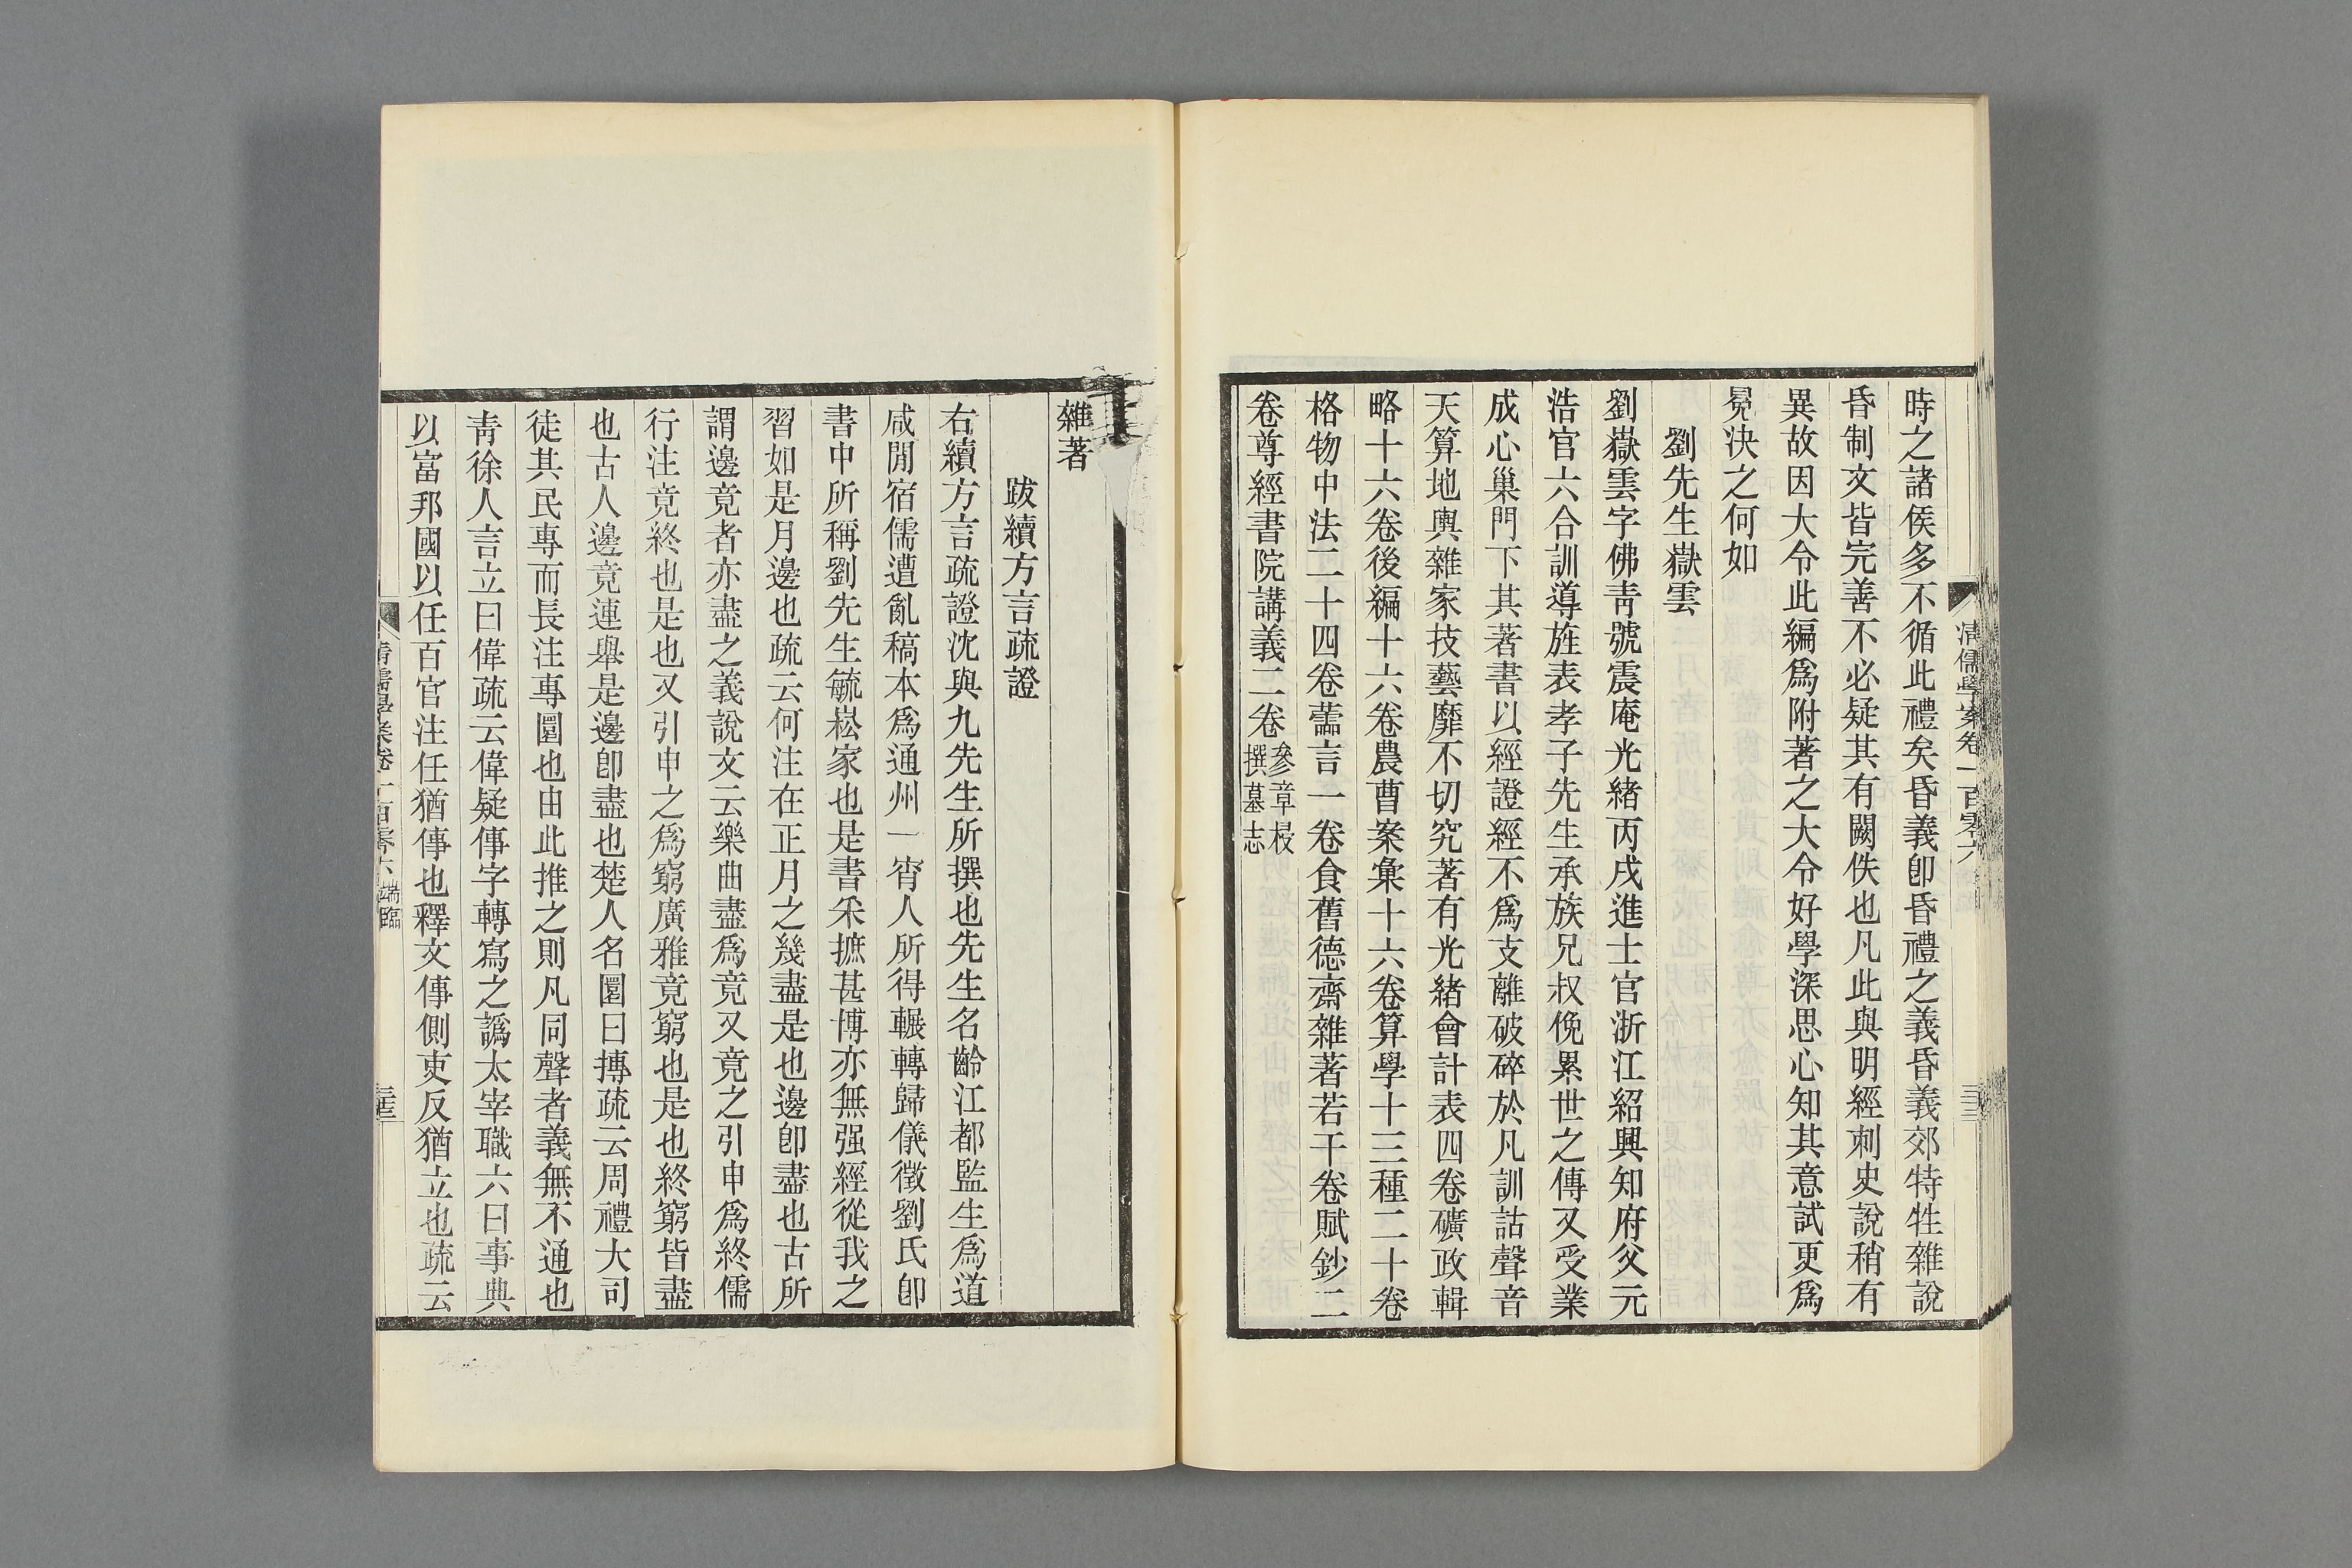 清儒學案卷一百零六
時之諸侯多不循此禮矣昏義卽昏禮之義昏義郊特牲雜說
昏制文皆完善不必疑其有闕佚也凡此與明經刺史說稍有
異故因大令此編爲附著之大令好學深思心知其意試更爲
覓決之何如
劉先生嶽雲
劉嶽雲字佛靑號震庵光緖丙戌進士官浙江紹興知府父元
浩官六合訓導旌表孝子先生承族兄叔俛累世之傳又受業
成心巢門下其著書以經證經不爲支離破碎於凡訓詁聲音
天算地輿雜家技藝靡不切究著有光緖會計表四卷礦政輯
略十六卷後編十六卷農曹案彙十六卷算學十三種二十卷
格物中法二十四卷藝言一卷食舊德齋雜著若干卷賦鈔二
卷尊經書院講義二卷參章梫
撰墓志
雜著
跋續方言疏證
右續方言疏證沈與九先生所撰也先生名齡江都監生爲道
咸閒宿儒遭亂稿本爲通州一宵人所得輾轉歸儀徵劉氏卽
書中所稱劉先生毓崧家也是書采摭甚博亦無强經從我之
習如是月邊也疏云何注在正月之幾盡是也邊卽盡也古所
謂邊竟者亦盡之義說文云樂曲盡爲竟又竟之引申爲終儒
行注竟終也是也又引申之爲窮廣雅竟窮也是也終窮皆盡
也古人邊竟連舉是邊卽盡也楚人名圜曰摶疏云周禮大司
徒其民專而長注專圜也由此推之則凡同聲者義無不通也
靑徐人言立曰偉疏云偉疑倳字轉寫之譌太宰職六曰事典
以富邦國以任百官注任猶倳也釋文倳側吏反猶立也疏云
清儒學案卷一百零六 端臨